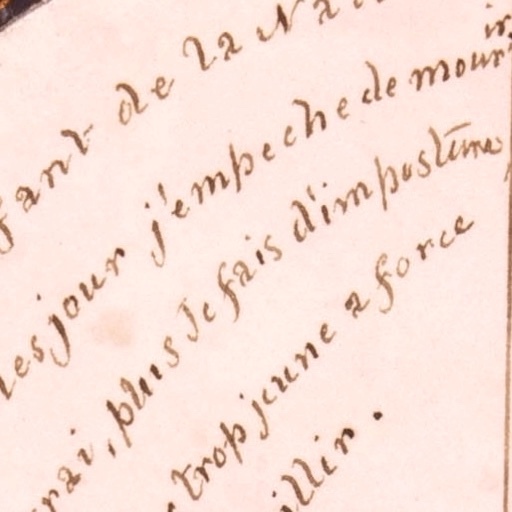 fant de la Na
les jour j'empeche de mourir
vrai, plus Je fais d'imposture
trop jeune a force
illir.